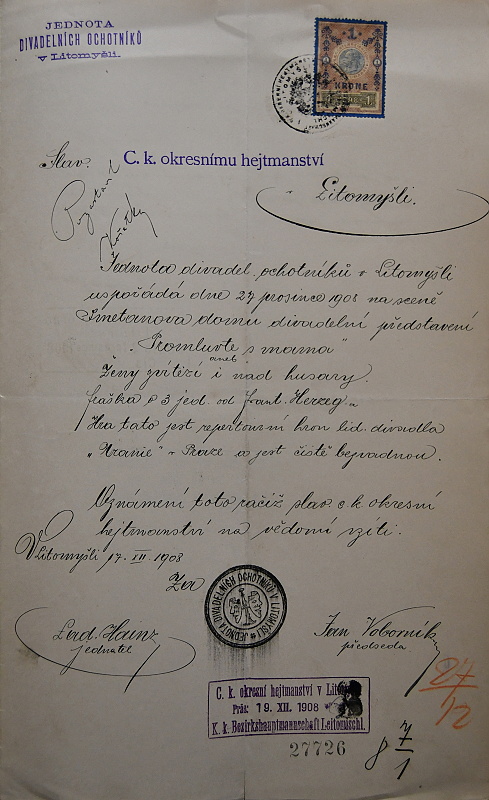 JEDNOTA
DIVADELNÍCH OCHOTNÍKŮ
v Litomyšli.
1
KRONE
Slav. C. k. okresnímu hejtmanství
Litomyšli.
Jednota divadel. ochotníků v Litomyšli
uspořádá dne 27 prosince 1908 na scéně
Smetanova domu divadelní představení
„Promluvte s mama"
aneb
Ženy zvítězí i nad husary.
fraška o 3 jed. od Frant. Herzeg.
Hra tato jest repertourní kron lid. divadla
„Uranie" v Praze a jest čistě bezvadnou.
Oznámení toto račiž slav. c. k. okresní
hejtmanství na vědomí vzíti.
V Litomyšli 17. XII. 1908
Za
JEDNOTA DIVADELNÍCH OCHOTNÍKŮ V LITOMYŠLI
Lad. Hainz
jednatel
Jan Voborník
předseda
27/12
C. k. okresní hejtmanství v Litom
Präs. 19. XII. 1908
K. k. Bezirkshauptmannschaft Leitomischl.
27726
8 7/1